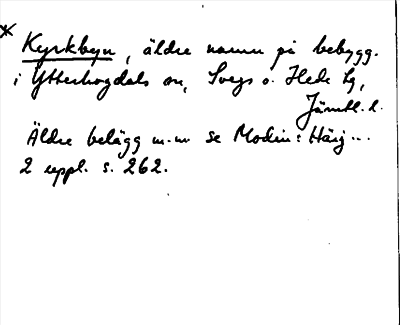 * Kyrkbyn, äldre namn på bebygg.
i Ytterhogdals sn, Svegs o. Hede tg,
Jämtl. l.
Äldre belägg m.m se Modin: Härj...
2 uppl. s. 262.